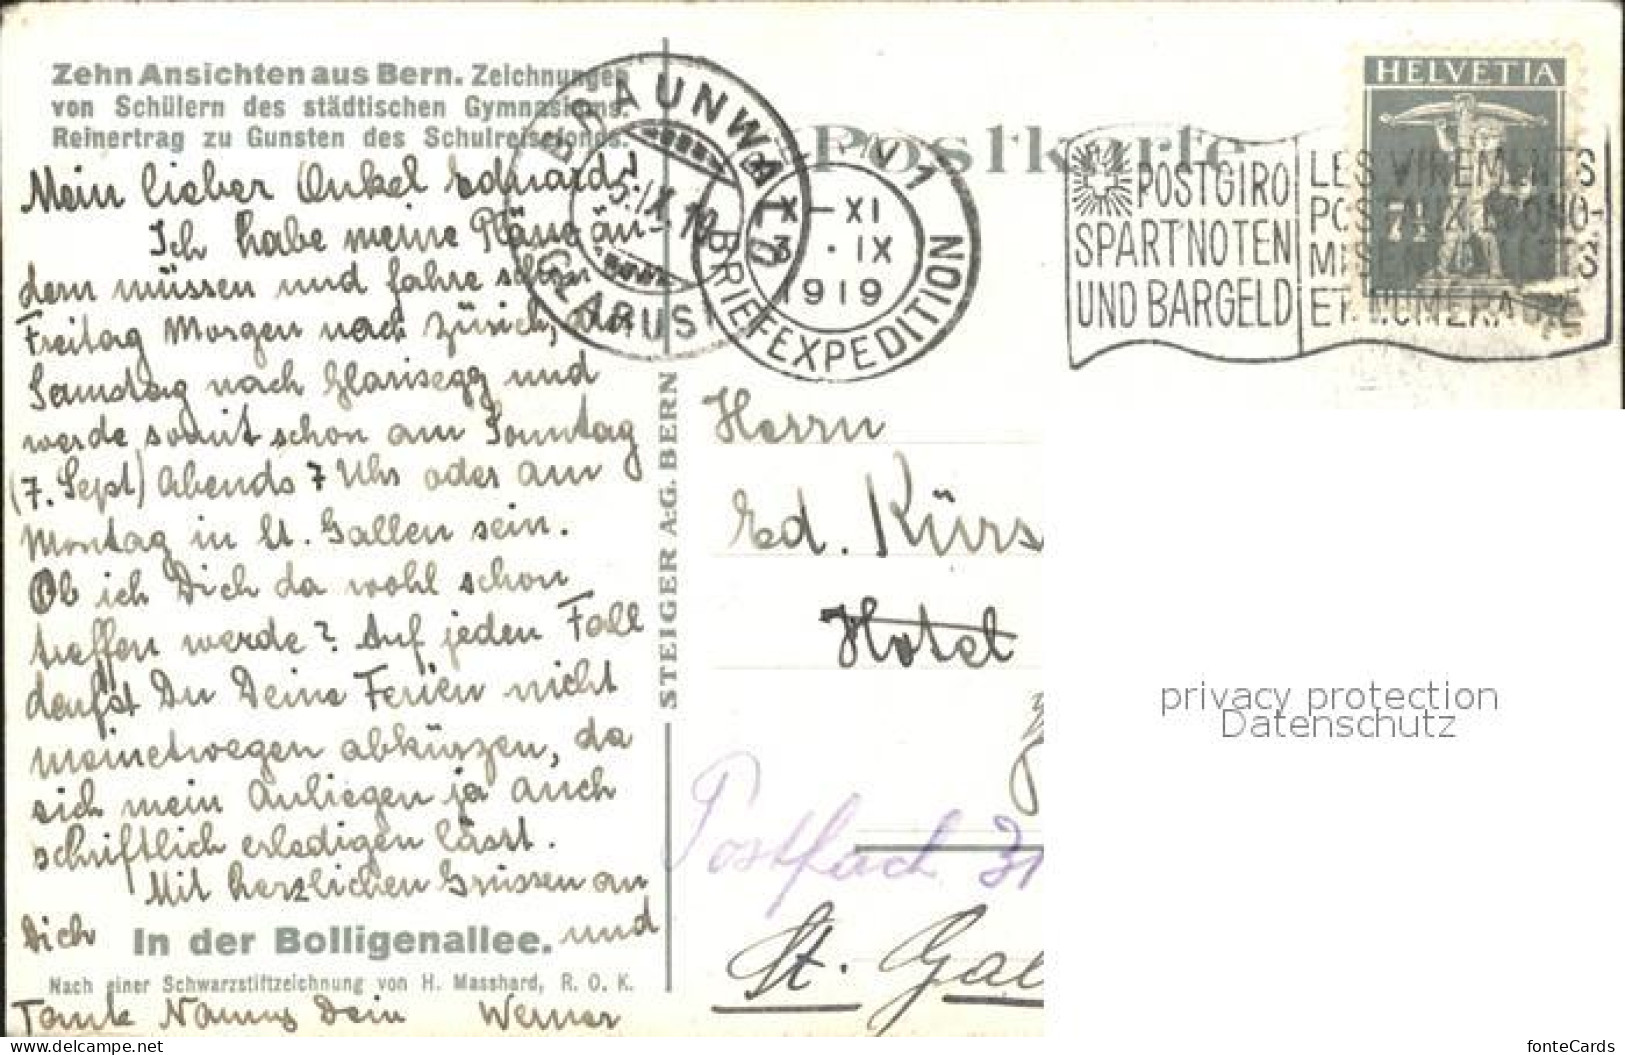 Zehn Ansichten aus Bern. Zeichnungen
von Schülern des städtischen Gymnasiums.
Reinertrag zu Gunsten des Schulreisefonds.
Mein lieber Onkel Eduard!
Ich habe meine Pläne än-
dern müssen und fahre schon
Freitag Morgen nach Zürich, den
Samstag nach Glarisegg und
werde somit schon am Sonntag
(7. Sept) Abends 7 Uhr oder am
Montag in St. Gallen sein.
Ob ich Dich da wohl schon
treffen werde? Auf jeden Fall
darfst Du Deine Ferien nicht
meinetwegen abkürzen, da
sich mein Anliegen ja auch
schriftlich erledigen lässt.
Mit herzlichen Grüssen an
Dich und
In der Bolligenallee.
Nach einer Schwarzstiftzeichnung von H. Masshard, R. O. K.
Tante Dein Werner
STEIGER A.G. BERN
Postkarte
BRAUNWALD
5.IX.19
GLARUS
1
X-XI
3.IX
1919
BRIEFEXPEDITION
POSTGIRO
SPART NOTEN
UND BARGELD
LES VIREMENTS
POSTAUX ÉCONO-
MISENT BILLETS
ET NUMÉRAIRE
HELVETIA
7½
Herrn
Ed. Kürs
Hotel
Postfach 31
St. Gal
privacy protection
Datenschutz
delcampe.net
fonteCards